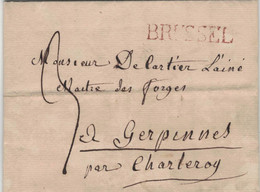 BRUSSEL
Monsieur De Cartier L'ainé
Maitre des Forges
à Gerpinnes
par Charleroy